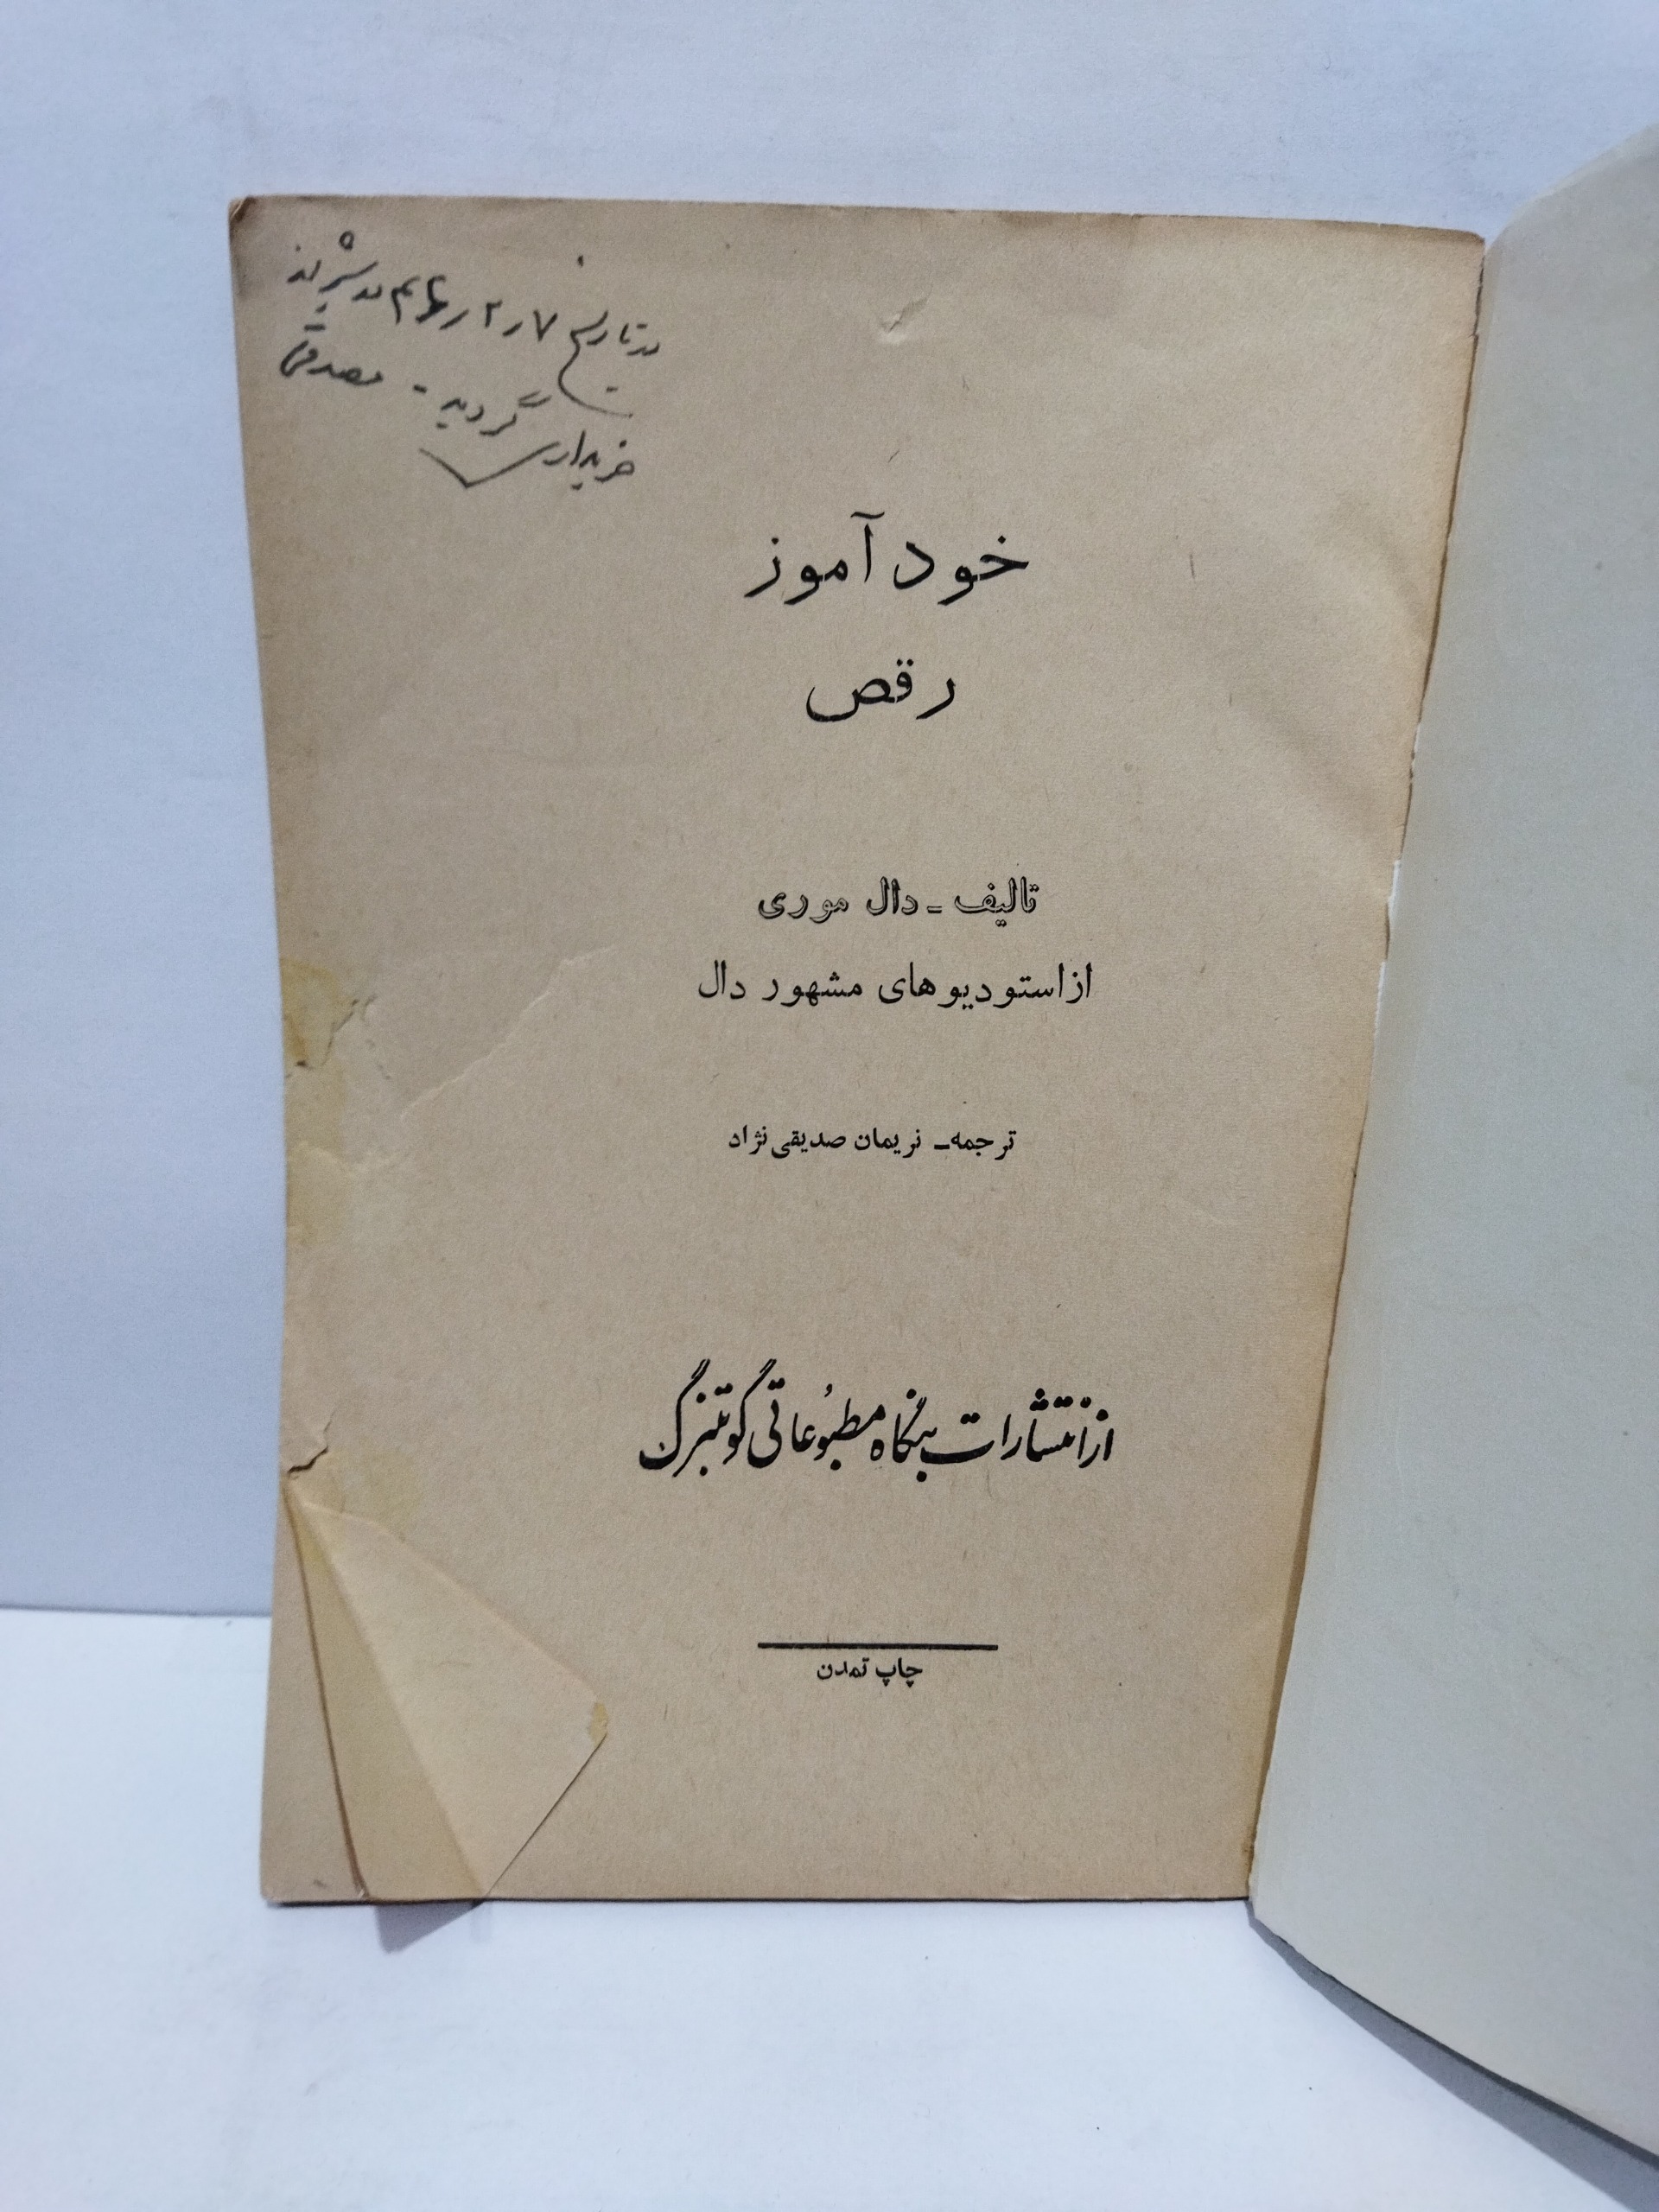 بتاریخ ۷ر۲ر۴۶
خریداری گردید -
خود آموز
رقص
تالیف - دال موری
از استودیوهای مشهور دال
ترجمه - نریمان صدیقی نژاد
از انتشارات بنگاه مطبوعاتی گوتنبرگ
چاپ تمدن